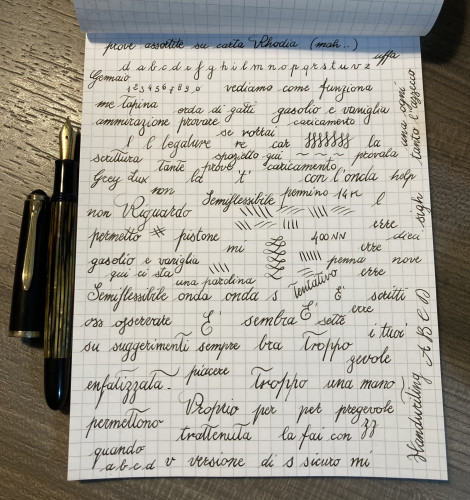 prove assortite su carta Rhodia (mah..)
uffa
d a b c d e f g h i l m n o p q r s t u v z
Gennaio 1 2 3 4 5 6 7 8 9 0 vediamo come funziona
me tapina orda di gatti gasolio e vaniglia
ammirazione provare caricamento
se vorrai
! l legature re car fffffff la
scrittura spazello qui provala
tante prove caricamento
Grey Lux la "t" con l'onda help
non Semiflessibile pennino 14K
non Riguardo l
permetto # pistone erre
mi 400NN erre dieci
gasolio e vaniglia penna nove
qui ci sta erre
una parolina tentativo
Semiflessibile onda onda s E' scritti
oss osservare E' sembra E' erre
sette
su suggerimenti sempre bra Troppo i tuoi
gevole
piacere
enfatizzata Troppo una mano
Proprio per per pregevole
permettono trattenuta la fai con zz
quando
a b c d v versione di s sicuro mi
una ogni
tanto l'azzecco
sigh
Handwriting A B C D